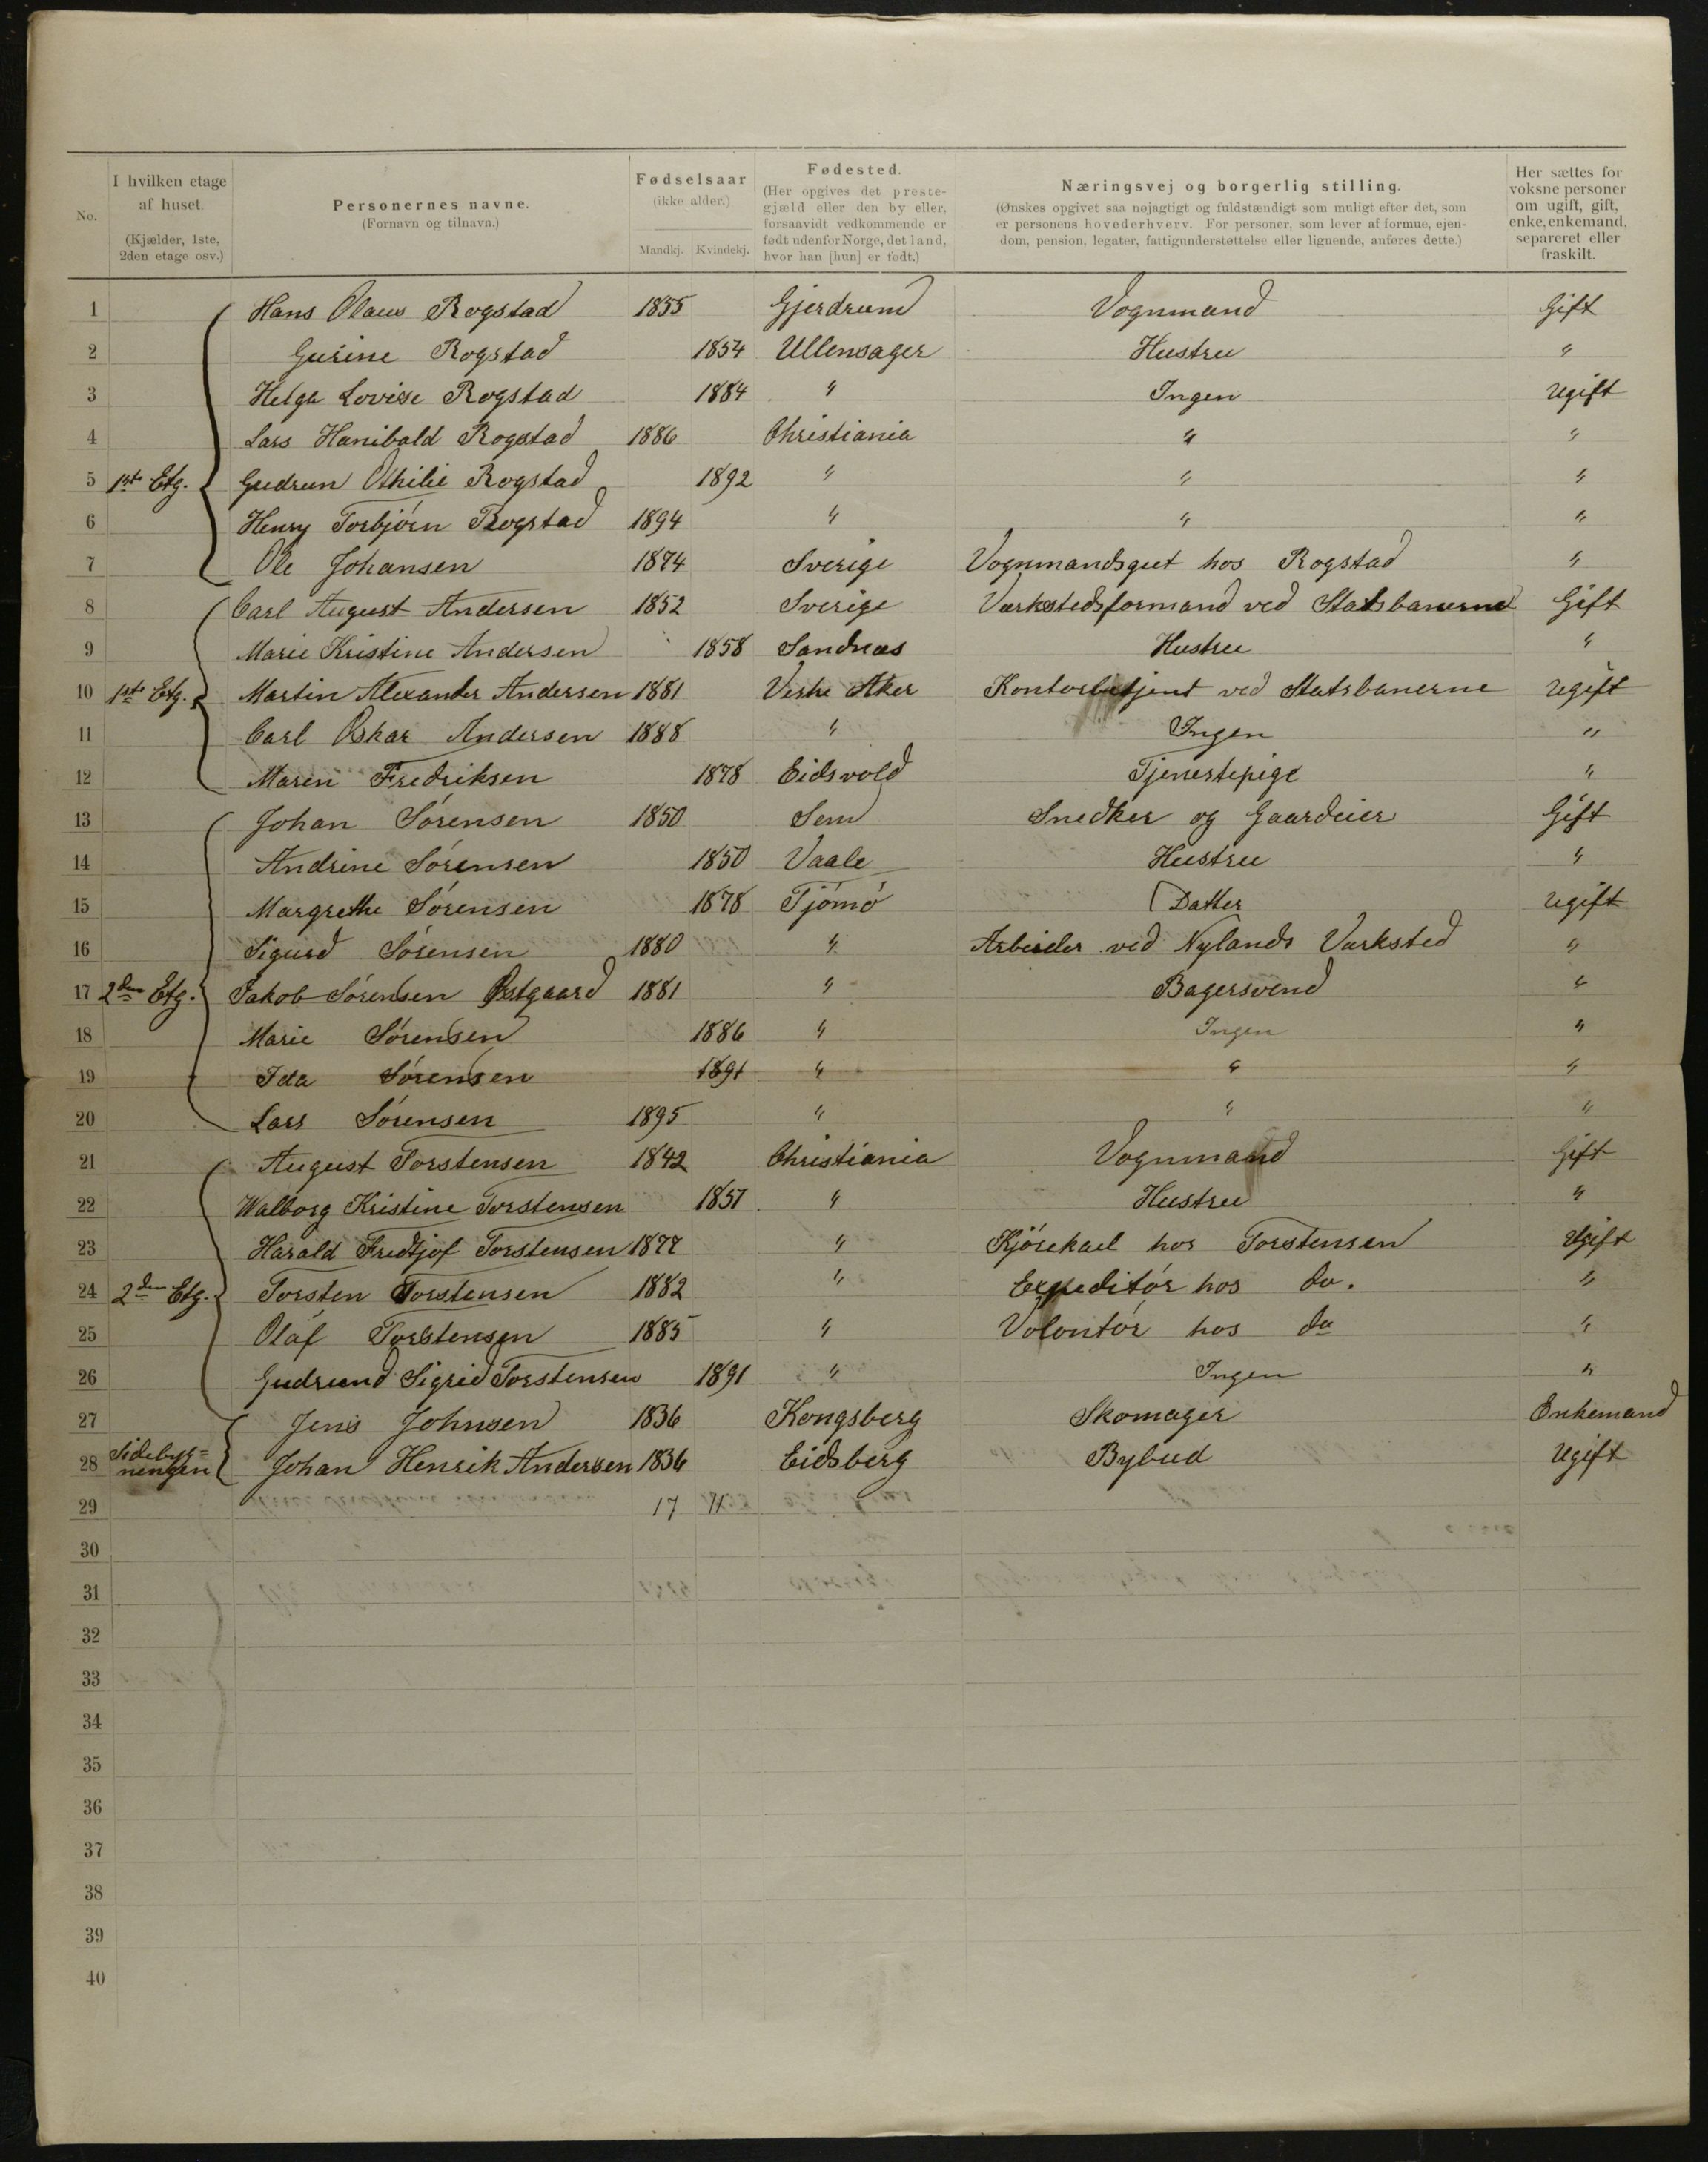 No.
I hvilken etage af huset.
(Kjælder, 1ste, 2den etage osv.)
Personernes navne.
(Fornavn og tilnavn.)
Fødselsaar
(ikke alder.)
Mandkj. Kvindekj.
Fødested.
(Her opgives det prestegjæld eller den by eller, forsaavidt vedkommende er født udenfor Norge, det land, hvor han [hun] er født.)
Næringsvej og borgerlig stilling.
(Ønskes opgivet saa nøjagtigt og fuldstændigt som muligt efter det, som er personens hovederhverv. For personer, som lever af formue, ejendom, pension, legater, fattigunderstøttelse eller lignende, anføres dette.)
Her sættes for voksne personer om ugift, gift, enke, enkemand, separeret eller fraskilt.
1 Hans Olaus Rogstad 1855 Gjerdrum Vognmand Gift
2 Gurine Rogstad 1854 Ullensager Hustru "
3 Helga Lovise Rogstad 1884 " Ingen Ugift
4 Lars Hanibald Rogstad 1886 Christiania " "
5 1ste Etg. Gudrun Othilie Rogstad 1892 " " "
6 Henry Torbjörn Rogstad 1894 " " "
7 Ole Johansen 1874 Sverige Vognmandsgut hos Rogstad "
8 Carl August Andersen 1852 Sverige Værkstedsformand ved Statsbanerne Gift
9 Marie Kristine Andersen 1858 Sandnæs Hustru "
10 1ste Etg. Martin Alexander Andersen 1881 Vestre Aker Kontorbetjent ved Statsbanerne Ugift
11 Carl Oskar Andersen 1888 " Ingen "
12 Maren Fredriksen 1878 Eidsvold Tjenestepige "
13 Johan Sörensen 1850 Sem Snedker og Gaardeier Gift
14 Andrine Sörensen 1850 Vaale Hustru "
15 Margrethe Sörensen 1878 Tjömö Datter Ugift
16 Sigurd Sörensen 1880 " Arbeider ved Nylands Værksted "
17 2den Etg. Jakob Sörensen Østgaard 1881 " Bagersvend "
18 Marie Sörensen 1886 " Ingen "
19 Ida Sörensen 1891 " " "
20 Lars Sörensen 1895 " " "
21 August Torstensen 1842 Christiania Vognmand Gift
22 Walborg Kristine Torstensen 1851 " Hustru "
23 Harald Fredtjof Torstensen 1877 " Kjörekarl hos Torstensen Ugift
24 2den Etg. Torsten Torstensen 1882 " Expeditör hos do. "
25 Olaf Torstensen 1885 " Volontör hos do "
26 Gudrund Sigrid Torstensen 1891 " Ingen "
27 Jens Johnsen 1836 Kongsberg Skomager Enkemand
28 Sidebyg=
nengen Johan Henrik Andersen 1836 Eidsberg Bybud Ugift
29 17 11
30
31
32
33
34
35
36
37
38
39
40